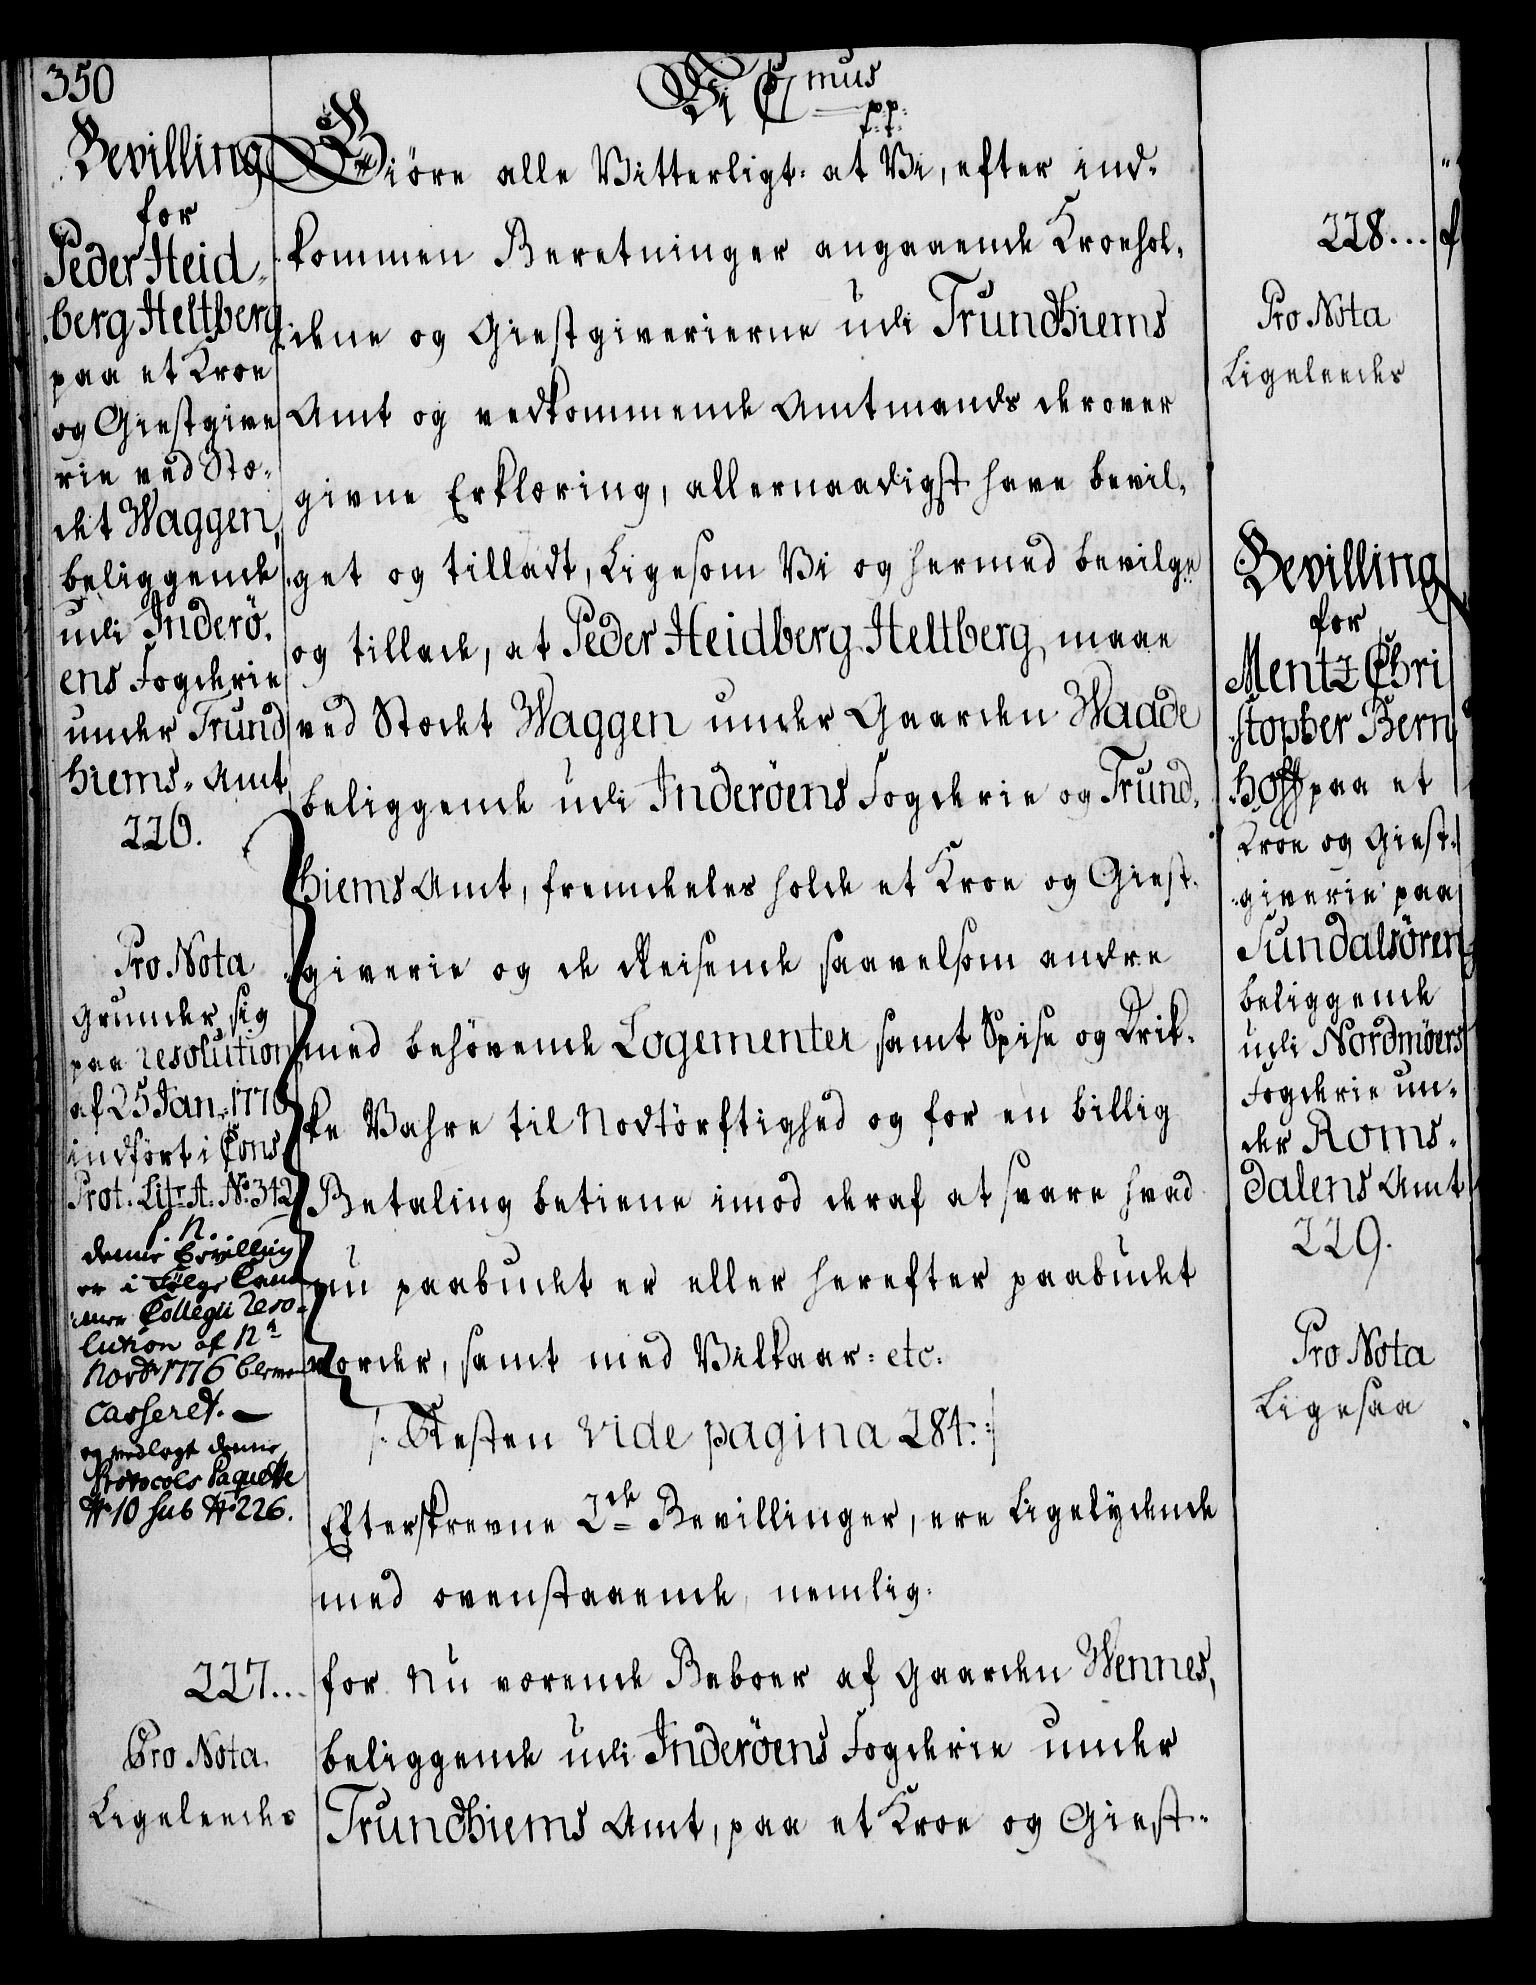 350
Bevilling
for
Peder Heid-
berg Heltberg
paa et Kroe
og Giestgive
rie ved Stæ-
det Waggen,
beliggende
udi Inderö-
ens Fogderie
under Trund
hiems Amt
226.
Pro Nota
grunder sig
paa resolution
af 25 Jan: 1776
indført i Cons
Prot. Litr. A. No. 342
P. N.
denne bevilling
er i Følge Cam
mer Collegii reso-
lution af 12te
Novbr 1776 bleven
casseret.
og vedlagt denne
Protocols Paquette
No 10 sub No 226.
227...
Pro Nota.
Ligeleedes
Vi C7mus
p.p:
f: f:
Giöre alle Vitterligt: at Vi, efter ind-
kommen Beretninger angaaende Kroehol-
dene og Giestgiverierne udi Trundhiems
Amt og vedkommende Amtmands derover
givne Erklæring, allernaadigst have bevil-
get og tilladt, Ligesom Vi og hermed bevilge
og tillade, at Peder Heidberg Heltberg, maae
ved Stædet Waggen under Gaarden Waade
beliggende udi Inderöens Fogderie og Trund-
hiems Amt, fremdeles holde et Kroe og Giest-
giverie og de Reisende saavelsom andre
med behövende Logementer samt Spise og Drik-
ke Vahre til Nodtörftighed og for en billig
Betaling betiene imod deraf at svare hvad
nu paabudet er eller herefter paabudet
vorder, samt med Vilkaar: etc.
/: Resten vide pagina 284. :/
Efterskrevne 2de Bevillinger, ere Ligelydende
med ovenstaaende, nemlig.
for Nu værende Beboer af Gaarden Wennes,
beliggende udi Inderöens Fogderie under
Trundhiems Amt, paa et Kroe og Giest-
228...
Pro Nota
Ligeleedes
Bevilling
for
Mentz Chri
stopher Bern
hoff paa et
Kroe og Giest-
giverie paa
Sundalsören
beliggende
udi Nordmöers
Fogderie un-
der Roms-
dalens Amt
229.
Pro Nota
Ligesaa